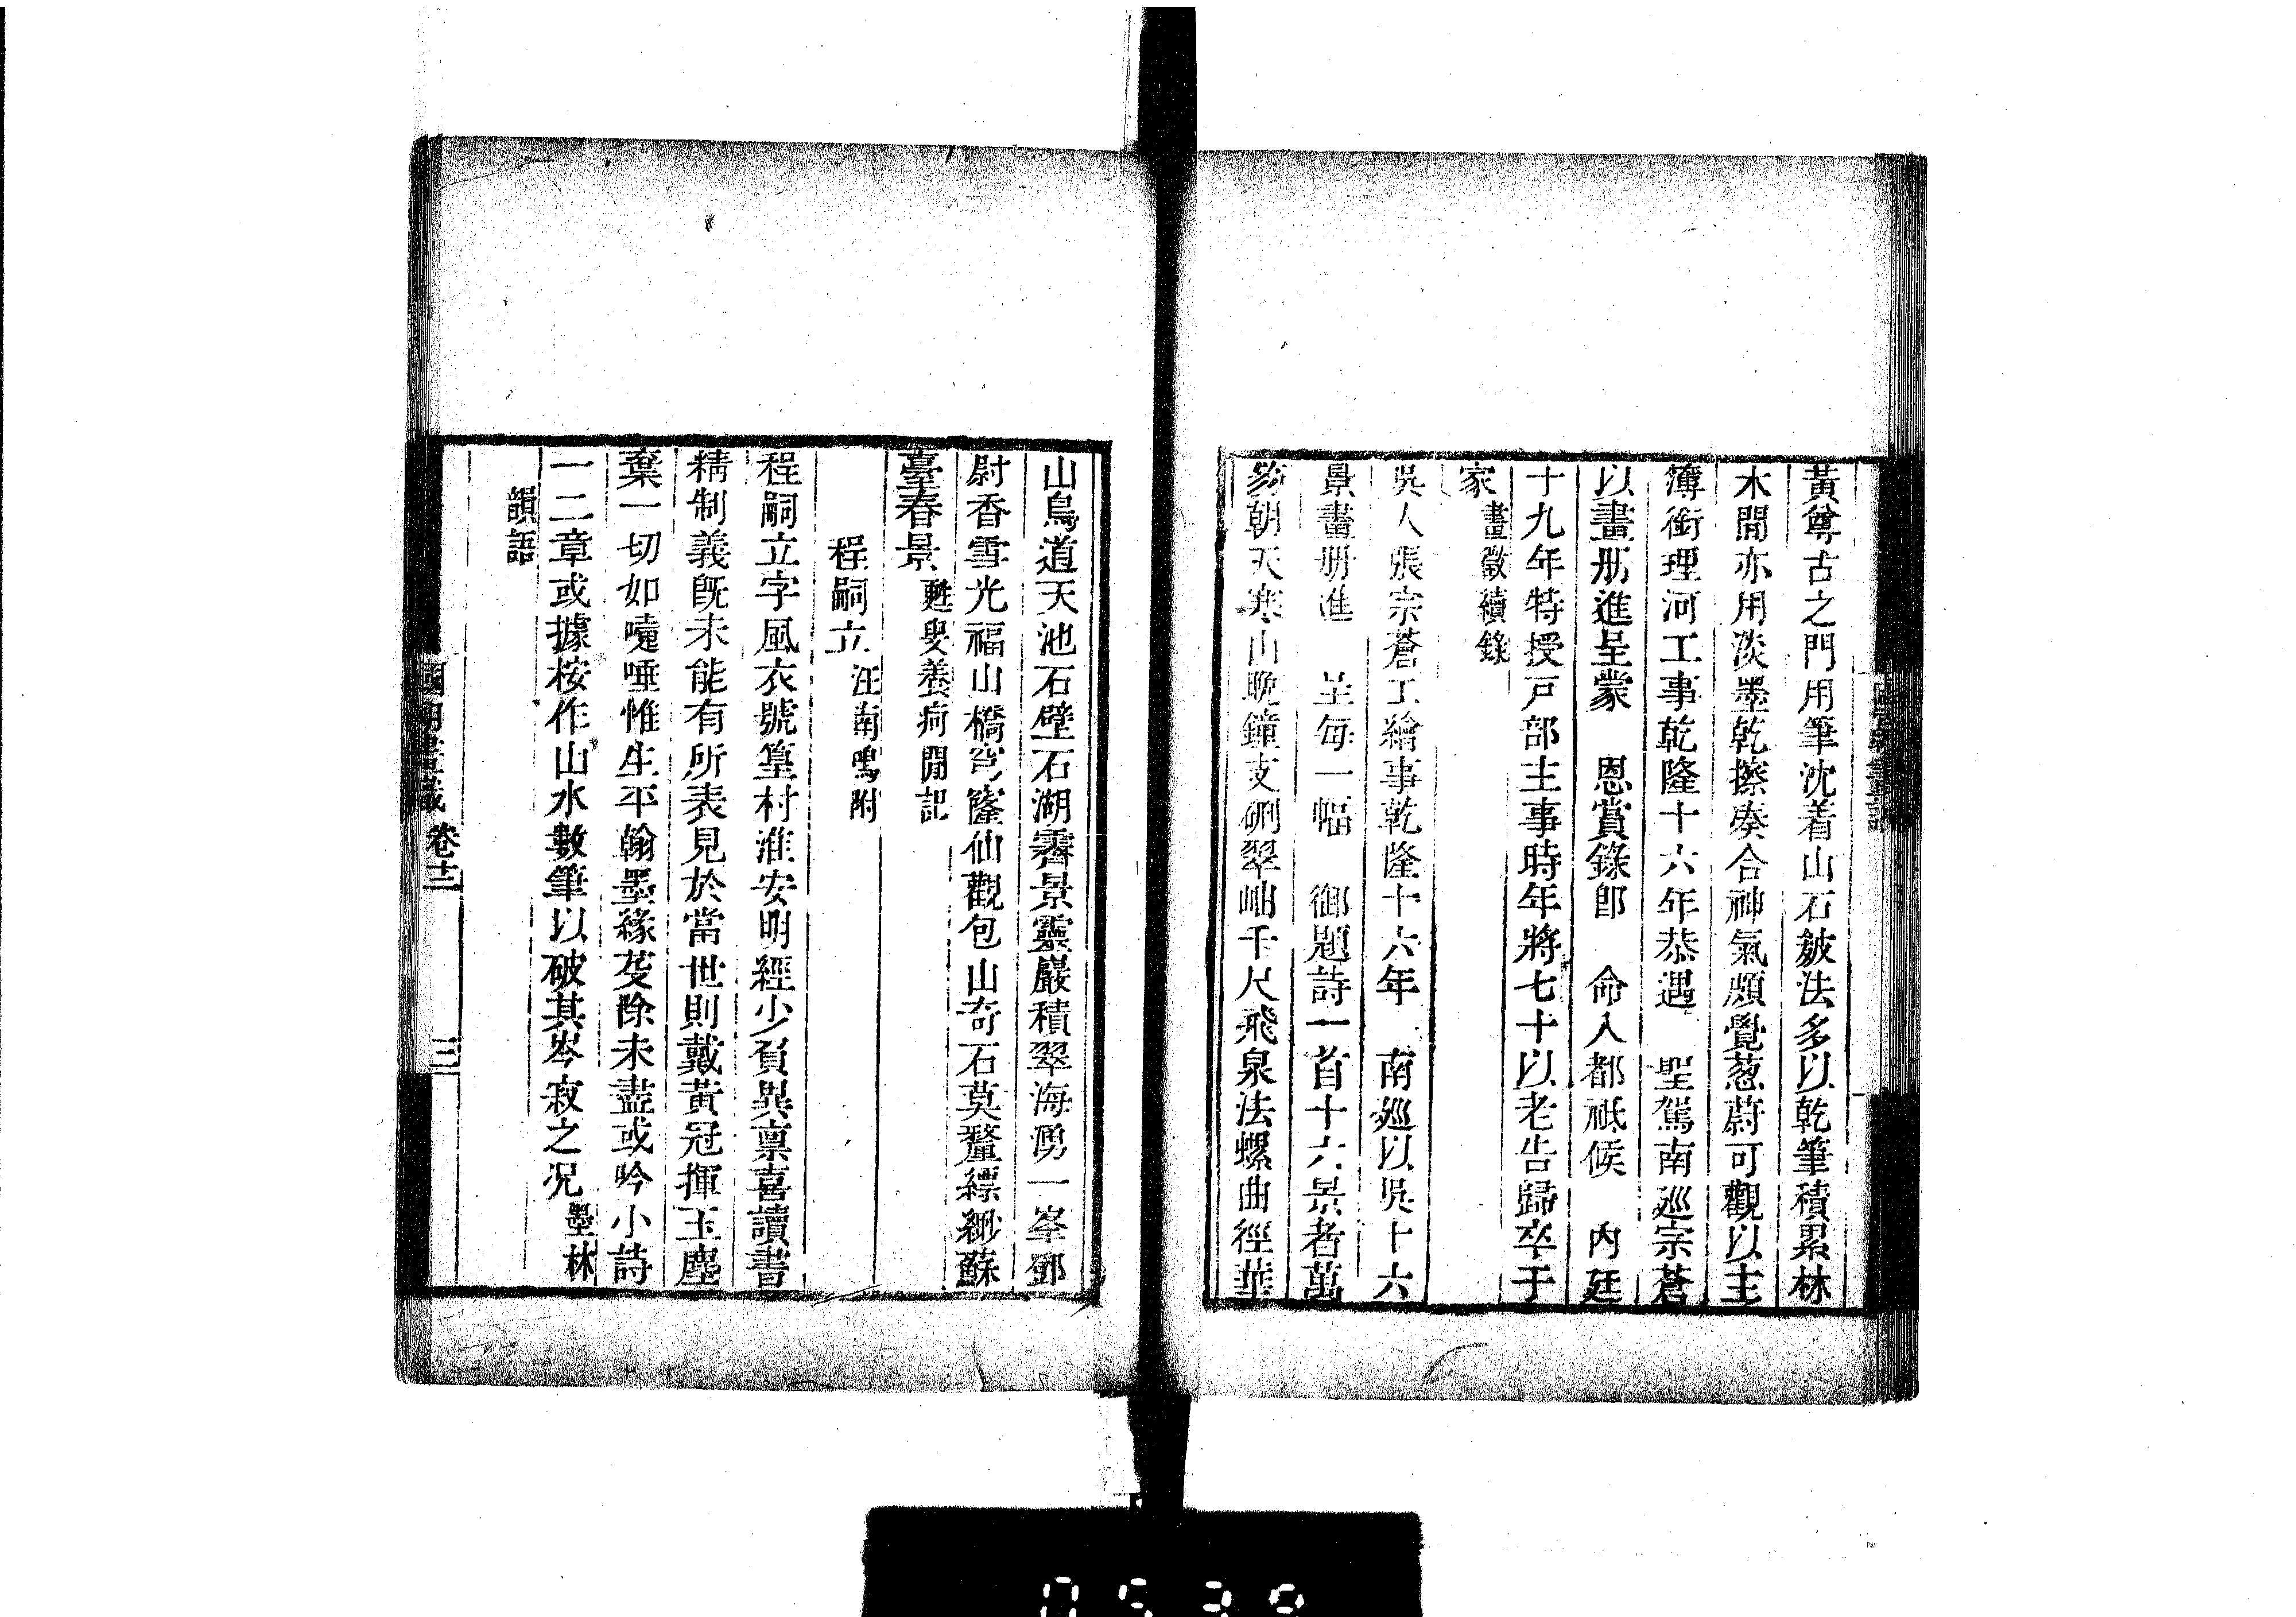 黃尊古之門用筆沈着山石皴法多以乾筆積累林
木間亦用淡墨乾擦湊合神氣頗覺葱蔚可觀以主
簿銜理河工事乾隆十六年恭遇 聖駕南巡宗蒼
以畫册進呈蒙 恩賞錄即 命入都祇候 內廷
十九年特授戶部主事時年將七十以老告歸卒于
家 畫徵續錄
吳人張宗蒼工繪事乾隆十六年 南巡以吳十六
景畫册進 呈每一幅 御題詩一首十六景者萬
笏朝天寒山曉鐘支硎翠岫千尺飛泉法螺曲徑華
山鳥道天池石壁石湖霽景靈巖積翠海湧一峯鄧
尉香雪光福山橋穹窿仙觀包山奇石莫釐縹緲蘇
臺春景 甦叟養疴閒記
程嗣立 汪南鳴附
程嗣立字風衣號篁村淮安明經少負異稟喜讀書
精制義既未能有所表見於當世則戴黃冠揮玉麈
棄一切如嚏唾惟生平翰墨緣芟除未盡或吟小詩
一二章或據桉作山水數筆以破其岑寂之況 墨林
韻語
國朝畫識 卷十二 三